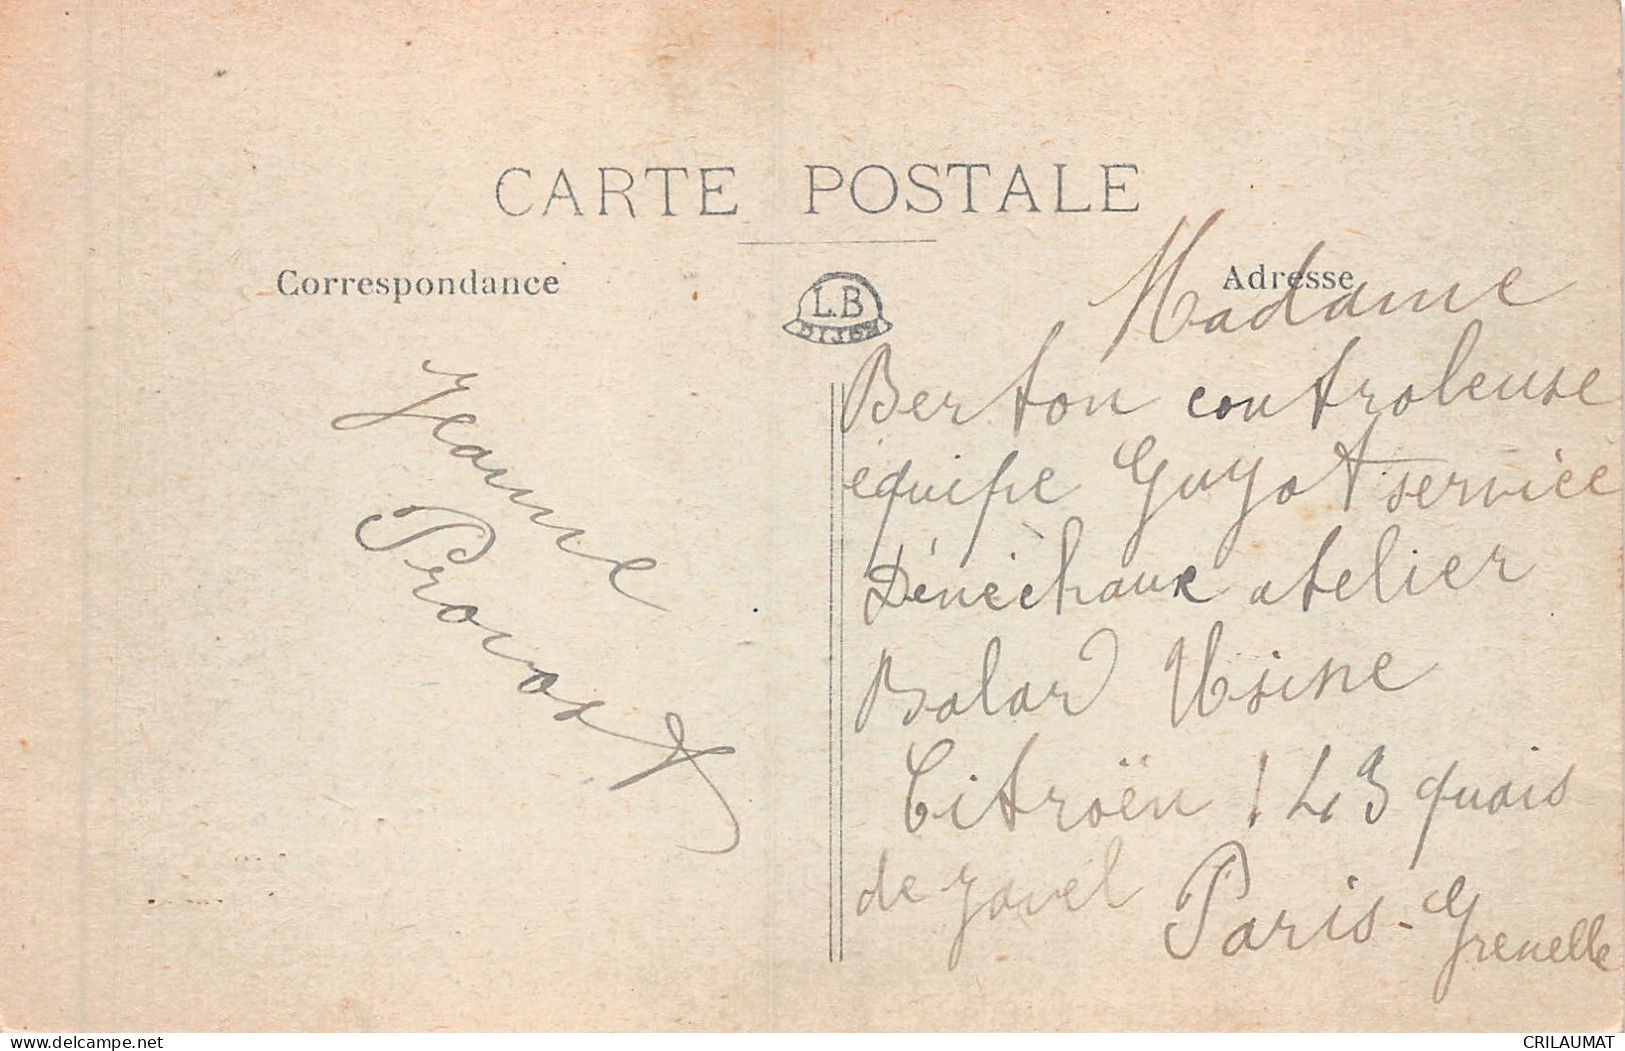 CARTE POSTALE
Correspondance
L.B
DIJON
Adresse
Jeanne
Provost
Madame
Berton controleuse
équipe Guyot service
Dénéchaux atelier
Balard Usine
Citroën 143 quais
de Javel Paris-Grenelle
www.delcampe.net
CRILAUMAT